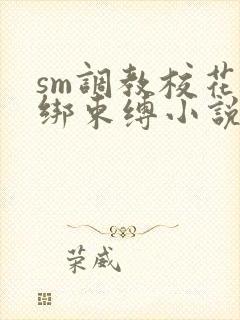 sm調教校花捆
綁束縛小說
荣威